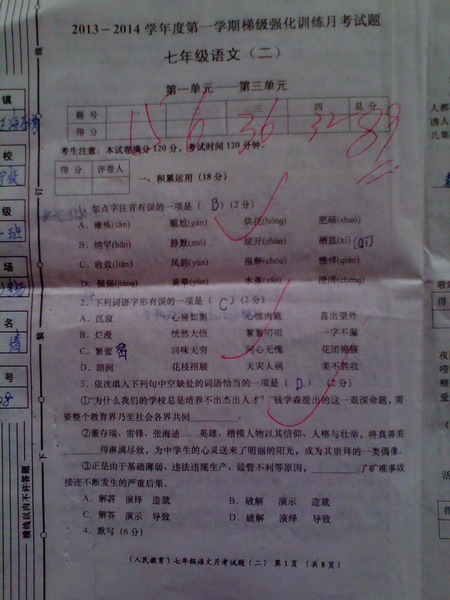 2013－2014学年度第一学期梯级强化训练月考试题
七年级语文（二）
第一单元——第三单元
题号 三 四 总分
得分 15 6 36 32 89
考生注意：本试卷满分120分，考试时间120分钟。
得分 评卷人
一、积累运用（18分）
加点字注音有误的一项是（B）（2分）
A、瘫痪(tān) 尴尬(gān) 烘托(hōng) 肥硕(shuò)
B、纳罕(hān) 静默(mò) 绽开(zhàn) 栖息(xī)(qī)
C、收敛(liǎn) 酬(chóu) 憔悴(qiáo)
D、倔强(jiàng) 黄晕(yùn) 水藻(zǎo) 澄清(chéng)
2、下列词语字形有误的一项是（C）（2分）
A、沉寂 心痒如割 惊肉跳 喜出望外
B、烂漫 恍然大悟 絮絮叨叨 一字不漏
C、繁蜜 密 回味无穷 问心无愧 花团锦簇
D、朗润 花枝招展 天灾人祸 美不胜收
3、依次填入下列句中空缺处的词语恰当的一项是（D）（2分）
①“为什么我们的学校总是培养不出杰出人才？”钱学森提出的这一艰深命题，需
要整个教育界乃至社会各界共同________。
②董存瑞、雷锋、张海迪……英雄、楷模人物以其信仰、人格与壮举，将真善美
________得淋漓尽致，为中学生的心灵送来了明丽的阳光，成为其崇拜的一类偶像。
③正是由于基础薄弱、违法违规生产、监管不利等原因，________了矿难事故
接连不断发生的严重后果。
A、解答 演绎 造就 B、破解 演示 造就
C、解答 演示 导致 D、破解 演绎 导致
4、默写（6分）
（人民教育）七年级语文月考试题（二） 第1页（共8页）
镇
校
级
一班
场
名
号
08
线
订
装
下
横线以内不许答题